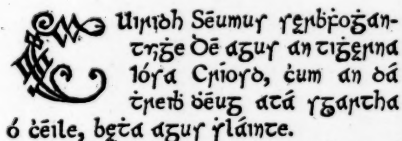 CUiridh Séumus searbḟoġan-
tuiġe Dé agus an tiġearna
Iósa Críosd, ċum an dá
ṫreib ḋéug atá sgartha
ó ċéile, beaṫa agus ṡláinte.